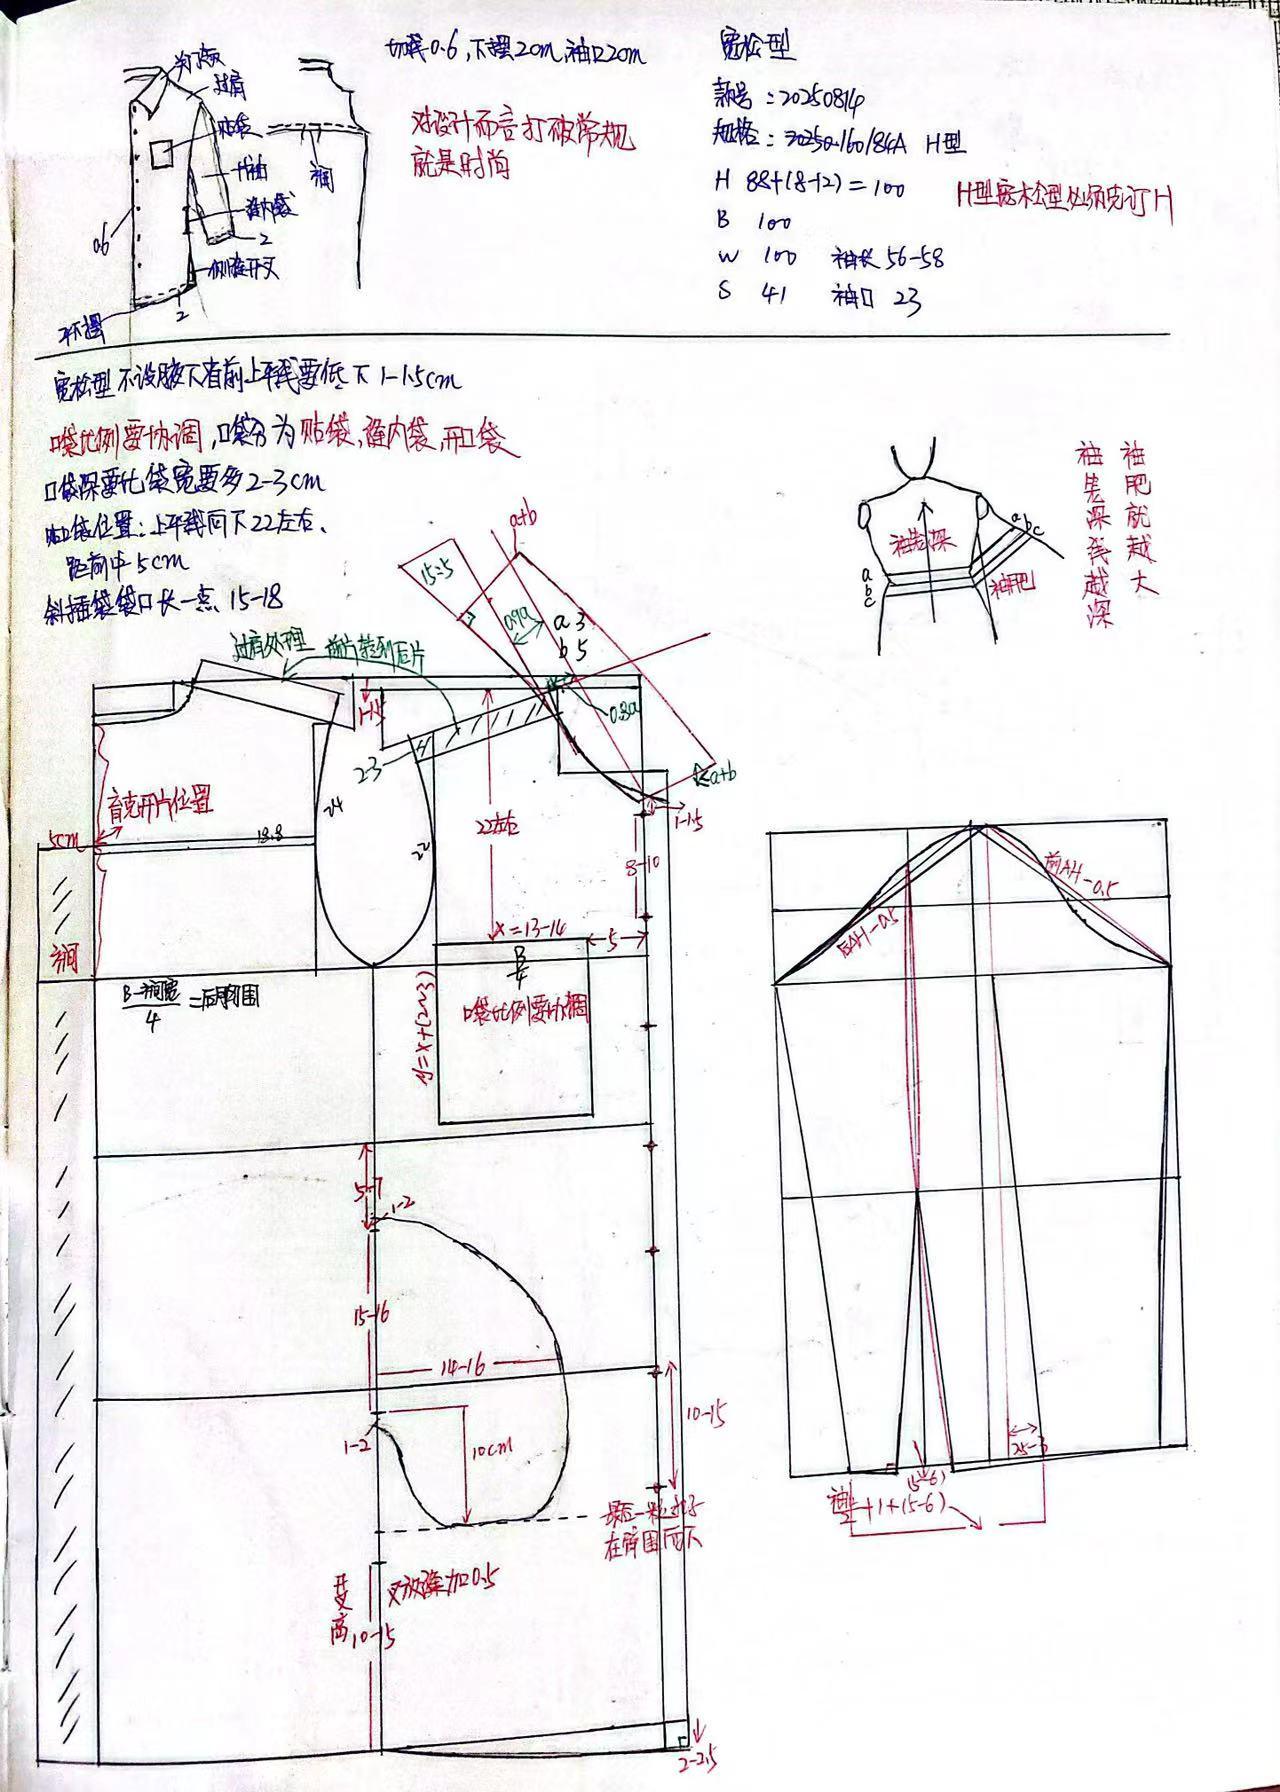 切线0.6,下摆2cm,袖口2cm
关门领
过肩
贴袋
一片袖
缝内袋
侧缝开叉
平下摆
0.6
2
2
裥
对设计而言打破常规
就是时尚
宽松型
款号:20250814
规格: 160/84A H型
H 88+(8-12)=100
B 100
W 100 袖长56-58
S 41 袖口 23
H型宽松型必须先订H
宽松型不设腋下省前上平线要低下1-1.5cm
口袋比例要协调,口袋分为贴袋,缝内袋,开口袋
口袋深要比袋宽要多2-3cm
贴袋位置:上平线向下22左右、
距前中5cm
斜插袋袋口长一点 15-18
袖窿深线越深
袖肥就越大
袖窿深
袖肥
a
b
c
a
b
c
a+b
15:5
0.9a
a 3
b 5
0.8a
a+b
过肩处理 前片转到后片
1-1.5
2-3
1-1.5
育克开片位置
5cm
18.8
24
22
22左右
8-10
x=13-14
5
B/4
口袋比例要协调
y=x+(2~3)
裥
(B-裥宽)/4=后胸围
5-7
1-2
15-16
14-16
1-2
10cm
10-15
最后一粒扣子
在臀围下
开叉高10-15
叉放缝加0.5
2-2.5
后AH-0.5
前AH-0.5
2.5-3
(5-6)
+1+(5-6)